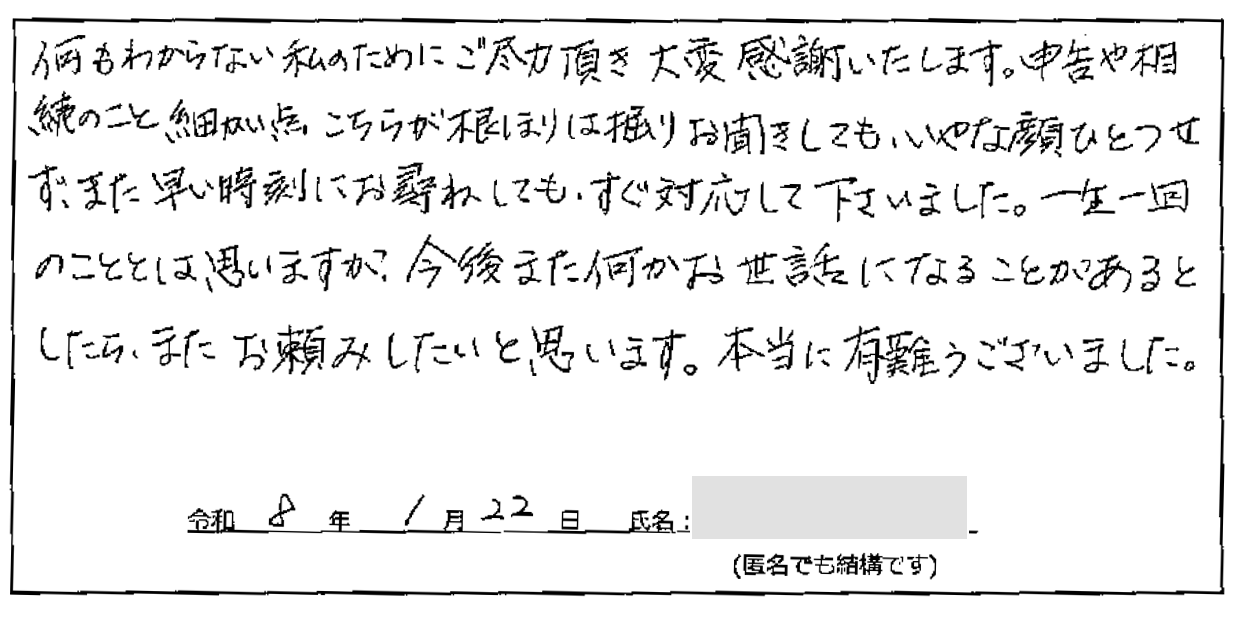 何もわからない私のためにご尽力頂き大変感謝いたします。申告や相
続のこと、細かい点、こちらが根ほりは掘りお聞きしても、いやな顔ひとつせ
ず、また早い時刻にお尋ねしても、すぐ対応して下さいました。一生一回
のこととは思いますが、今後また何かお世話になることがあると
したら、またお頼みしたいと思います。本当に有難うございました。
令和 8 年 1 月 22 日 氏名：
(匿名でも結構です)